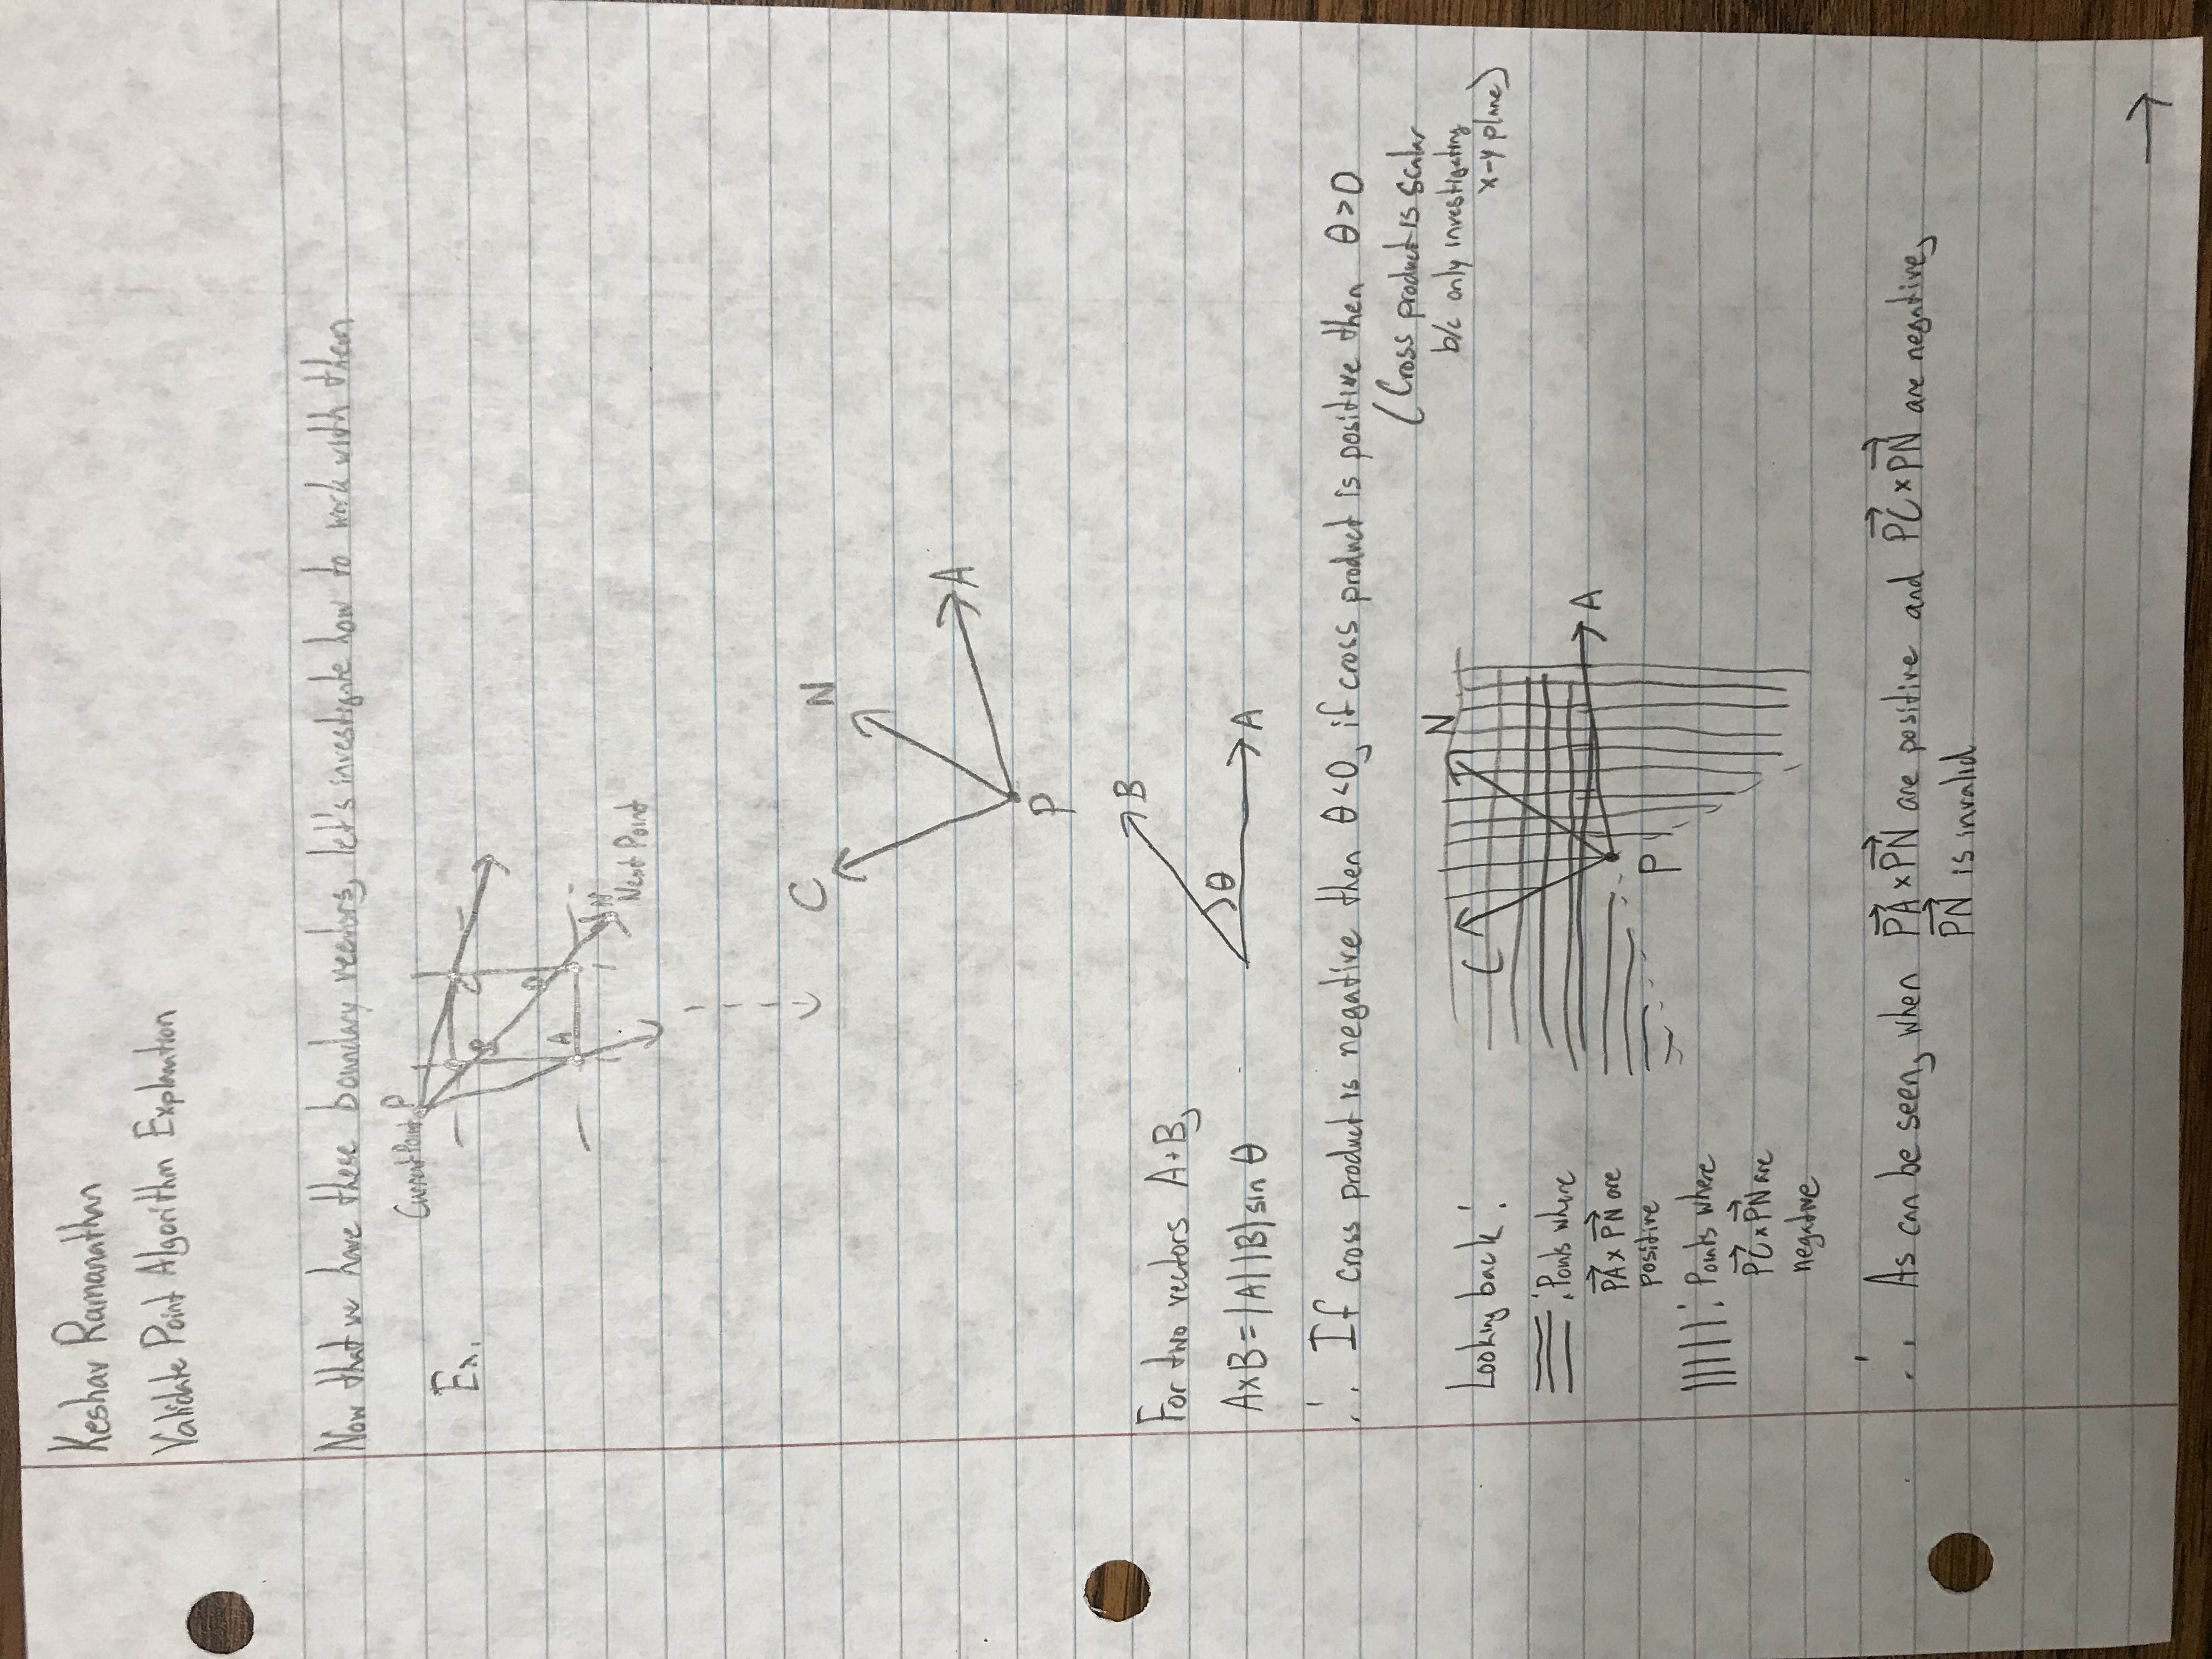 Keshav Ramanathan
Validate Point Algorithm Explanation
Now that we have these boundary vectors, let's investigate how to work with them
Ex.
Current Point P
B
C
D
A
N
Next Point
C
N
A
P
For two vectors A+B,
B
θ
A
A×B=|A||B| sin θ
∴ If cross product is negative then θ<0, if cross product is positive then θ>0
(Cross product is scalar
b/c only investigating
x-y plane)
Looking back:
C
N
A
P
: Points where
PA × PN are
positive
: Points where
PC × PN are
negative
∴ As can be seen, when PA × PN are positive and PC × PN are negative,
PN is invalid